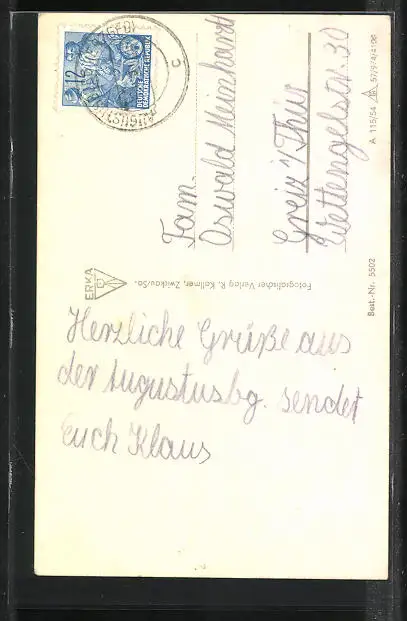 12
DEUTSCHE
DEMOKRATISCHE REPUBLIK
AUGUSTUSBURG
c
Fam.
Oswald Meinhardt
Greiz i/Thür
Wettengelstr. 30
A 115/54 57/974/4106
Best.-Nr. 5502
ERKA
Fotografischer Verlag R. Kallmer, Zwickau/Sa.
Herzliche Grüße aus
der Augustusbg. sendet
Euch Klaus